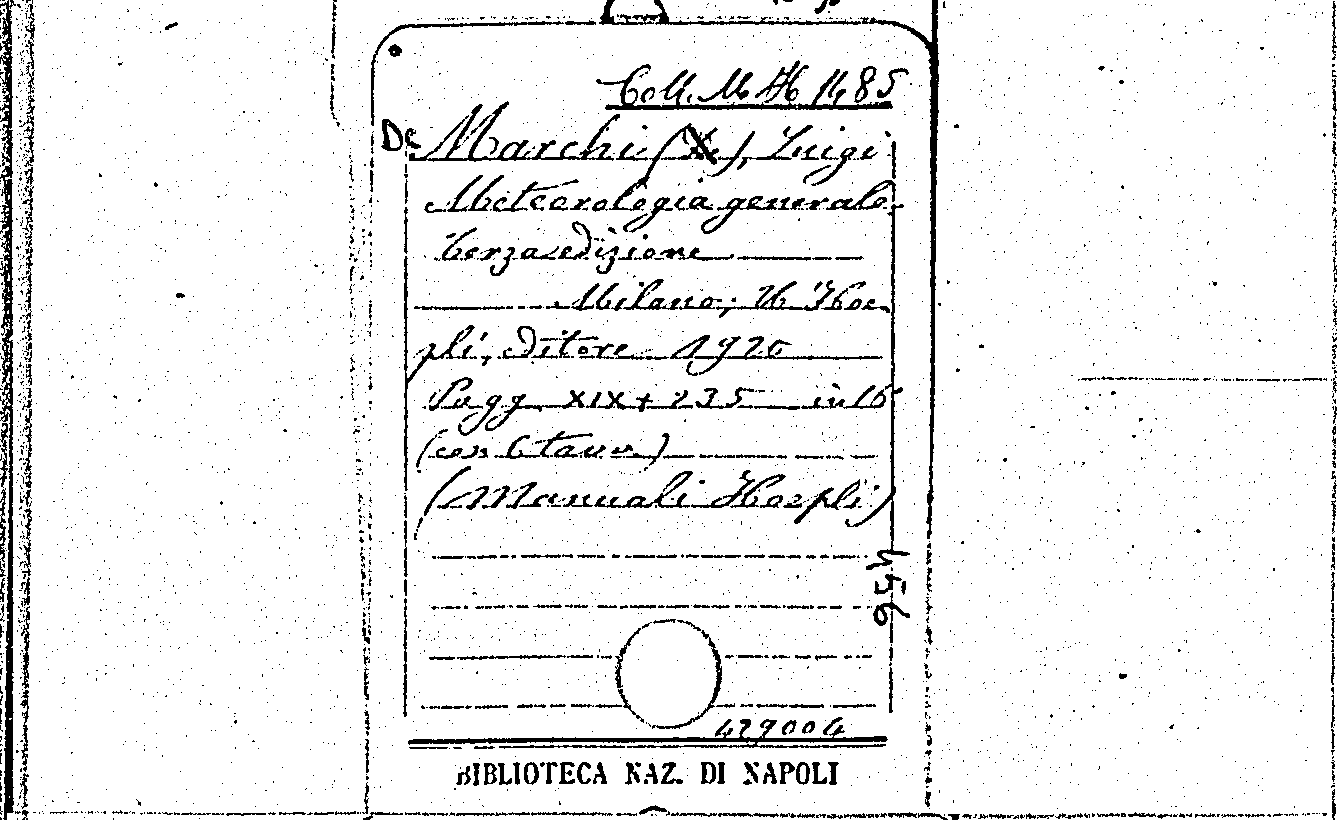 Coll. M H 1485
De Marchi (De), Luigi
Meteorologia generale
terza edizione
Milano, U Hoe-
pli, editore 1920
Pagg. XIX + 235 in 16°
(con 6 tavv.)
(Manuali Hoepli)
456
429004
BIBLIOTECA NAZ. DI NAPOLI